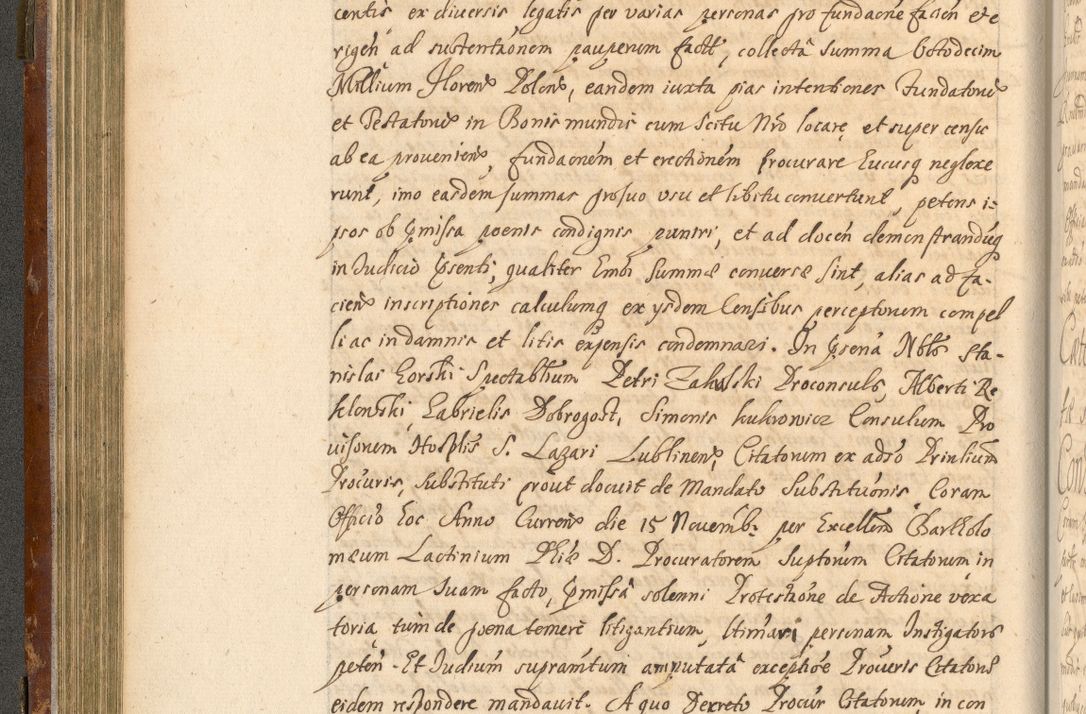 centis ex diversis legatis per varias personas pro fundaone facien et e
rigen ad sustentaonem pauperum factt, collectâ Summa Octodecim
Millium Floren Polon, eandem iuxta pias intentiones Fundatoru
et Testatoru in Bonis mundis cum Scitu Nro locare, et super censu
ab ea provenien, fundaoném et erectioném procurare Eucusq neglexe
runt, imo easdem summas pro suo usu et libitu convertunt, petens i=
psos ob pmissa poenis condignis puniri, et ad docen demonstrandúq
in Judicio psenti, qualiter Summæ conversæ sint, alias ad fa-
cien inscriptiones calculumq ex ysdem Censibus perceptorum compel
li ac in damnis et litis expensis condemnari. In psenâ Nblis Sta-
nislai Gorski Spectabilium Petri Proconsulis, Alberti Re
klowski, Gabrielis Dobrogost, Simonis kukrowicz Consulum Pro
visorum Hosplis S. Lazari Lublinen, Citatorum ex adso Prinlium
Procuris, Substituti prout docuit de Mandato Substitutionis Coram
Officio hoc Anno Curren die 15 Novemb: per Excellem Bartholo
mæum Lactinium Phiæ D. Procuratorem Suptorum Citatorum in
personam Suam facto, pmissâ solenni Protestaone de Actione vexa
toria tum de poena temere litigantium, personam Instigatoris
peten. Et Iudium supramtum amputatâ exceptioe Procuris Citatoru
eidem respondere mandavit. A quo Decreto Procur Citatorum in con